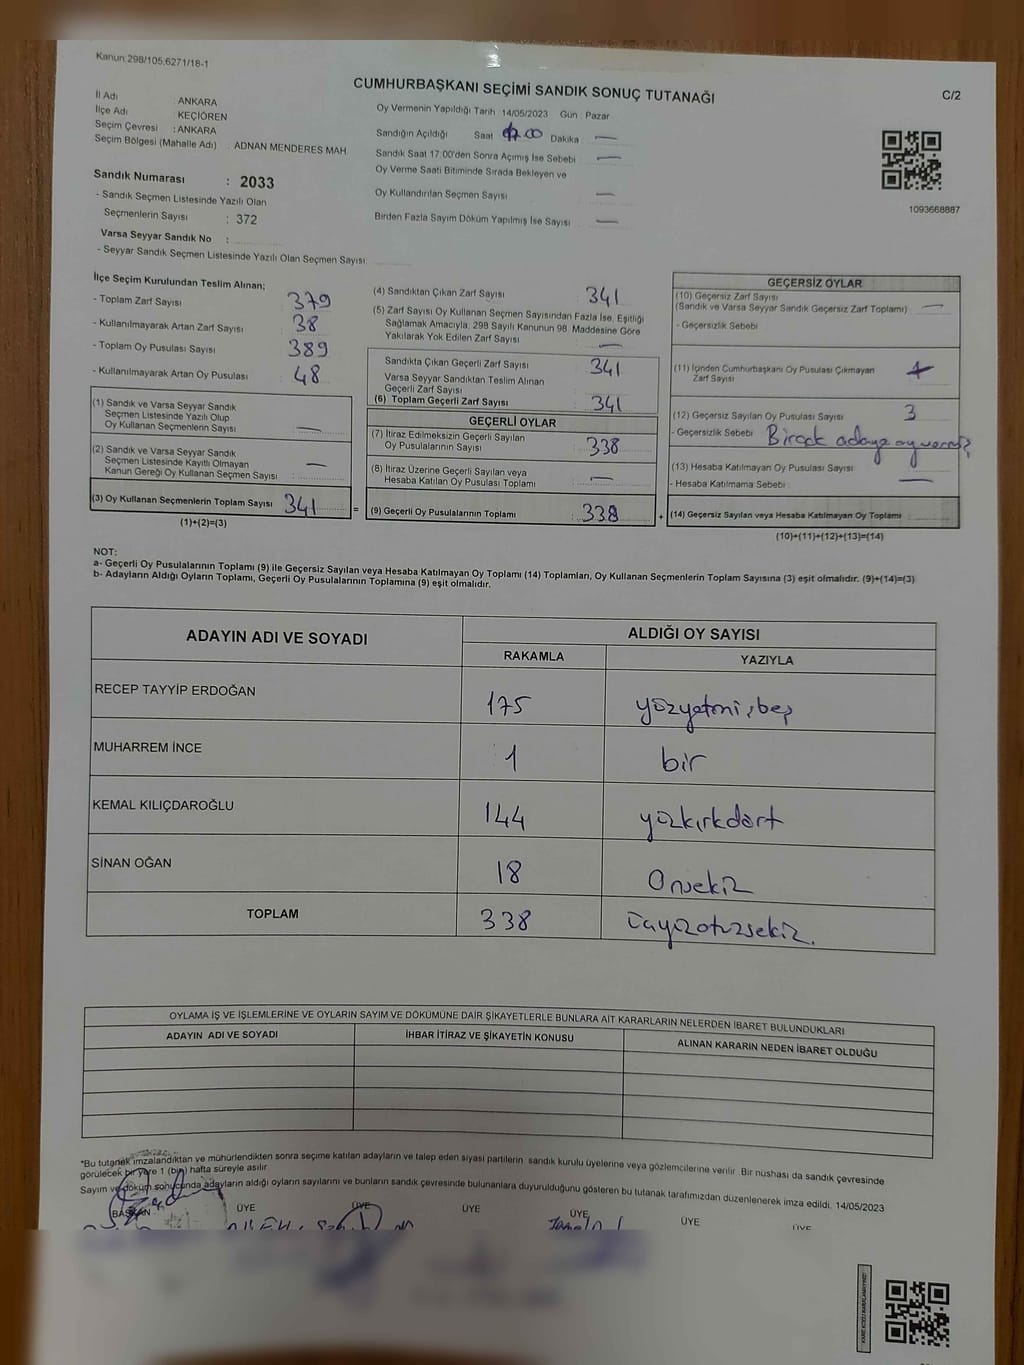 Kanun:298/105.6271/18-1
CUMHURBAŞKANI SEÇİMİ SANDIK SONUÇ TUTANAĞI
C/2
İl Adı : ANKARA
İlçe Adı : KEÇİÖREN
Seçim Çevresi : ANKARA
Seçim Bölgesi (Mahalle Adı) : ADNAN MENDERES MAH.
Oy Vermenin Yapıldığı Tarih 14/05/2023 Gün : Pazar
Sandığın Açıldığı Saat Dakika : —
Sandık Saat 17:00'den Sonra Açımış İse Sebebi —
Oy Verme Saati Bitiminde Sırada Bekleyen ve
Oy Kullandırılan Seçmen Sayısı : —
Birden Fazla Sayım Döküm Yapılmış İse Sayısı : —
1093668887
Sandık Numarası : 2033
- Sandık Seçmen Listesinde Yazılı Olan
Seçmenlerin Sayısı : 372
Varsa Seyyar Sandık No :
- Seyyar Sandık Seçmen Listesinde Yazılı Olan Seçmen Sayısı:
İlçe Seçim Kurulundan Teslim Alınan;
- Toplam Zarf Sayısı : 379
- Kullanılmayarak Artan Zarf Sayısı : 38
- Toplam Oy Pusulası Sayısı : 389
- Kullanılmayarak Artan Oy Pusulası : 48
(1) Sandık ve Varsa Seyyar Sandık
Seçmen Listesinde Yazılı Olup
Oy Kullanan Seçmenlerin Sayısı : —
(2) Sandık ve Varsa Seyyar Sandık
Seçmen Listesinde Kayıtlı Olmayan
Kanun Gereği Oy Kullanan Seçmen Sayısı : —
(3) Oy Kullanan Seçmenlerin Toplam Sayısı : 341
(1)+(2)=(3)
(4) Sandıktan Çıkan Zarf Sayısı : 341
(5) Zarf Sayısı Oy Kullanan Seçmen Sayısından Fazla İse, Eşitliği
Sağlamak Amacıyla, 298 Sayılı Kanunun 98. Maddesine Göre
Yakılarak Yok Edilen Zarf Sayısı : —
Sandıkta Çıkan Geçerli Zarf Sayısı : 341
Varsa Seyyar Sandıktan Teslim Alınan
Geçerli Zarf Sayısı :
(6) Toplam Geçerli Zarf Sayısı : 341
GEÇERLİ OYLAR
(7) İtiraz Edilmeksizin Geçerli Sayılan
Oy Pusulalarının Sayısı : 338
(8) İtiraz Üzerine Geçerli Sayılan veya
Hesaba Katılan Oy Pusulası Toplamı : —
= (9) Geçerli Oy Pusulalarının Toplamı : 338
GEÇERSİZ OYLAR
(10) Geçersiz Zarf Sayısı
(Sandık ve Varsa Seyyar Sandık Geçersiz Zarf Toplamı) : —
- Geçersizlik Sebebi
(11) İçinden Cumhurbaşkanı Oy Pusulası Çıkmayan
Zarf Sayısı :
(12) Geçersiz Sayılan Oy Pusulası Sayısı : 3
- Geçersizlik Sebebi : adaya
(13) Hesaba Katılmayan Oy Pusulası Sayısı :
- Hesaba Katılmama Sebebi : —
+ (14) Geçersiz Sayılan veya Hesaba Katılmayan Oy Toplamı :
(10)+(11)+(12)+(13)=(14)
NOT:
a- Geçerli Oy Pusulalarının Toplamı (9) ile Geçersiz Sayılan veya Hesaba Katılmayan Oy Toplamı (14) Toplamları, Oy Kullanan Seçmenlerin Toplam Sayısına (3) eşit olmalıdır. (9)+(14)=(3)
b- Adayların Aldığı Oyların Toplamı, Geçerli Oy Pusulalarının Toplamına (9) eşit olmalıdır.
ADAYIN ADI VE SOYADI
ALDIĞI OY SAYISI
RAKAMLA YAZIYLA
RECEP TAYYİP ERDOĞAN 175 yüzyetmişbeş
MUHARREM İNCE 1 bir
KEMAL KILIÇDAROĞLU 144 yüzkırkdört
SİNAN OĞAN 18 Onsekiz
TOPLAM 338 üçyüzotuzsekiz.
OYLAMA İŞ VE İŞLEMLERİNE VE OYLARIN SAYIM VE DÖKÜMÜNE DAİR ŞİKAYETLERLE BUNLARA AİT KARARLARIN NELERDEN İBARET BULUNDUKLARI
ADAYIN ADI VE SOYADI İHBAR İTİRAZ VE ŞİKAYETİN KONUSU ALINAN KARARIN NEDEN İBARET OLDUĞU
*Bu tutanak imzalandıktan ve mühürlendikten sonra seçime katılan adayların ve talep eden siyasi partilerin sandık kurulu üyelerine veya gözlemcilerine verilir. Bir nüshası da sandık çevresinde
görülecek bir yere 1 (bir) hafta süreyle asılır.
Sayım ve döküm sonucunda adayların aldığı oyların sayılarını ve bunların sandık çevresinde bulunanlara duyurulduğunu gösteren bu tutanak tarafımızdan düzenlenerek imza edildi. 14/05/2023
BAŞKAN ÜYE ÜYE ÜYE ÜYE ÜYE ÜYE